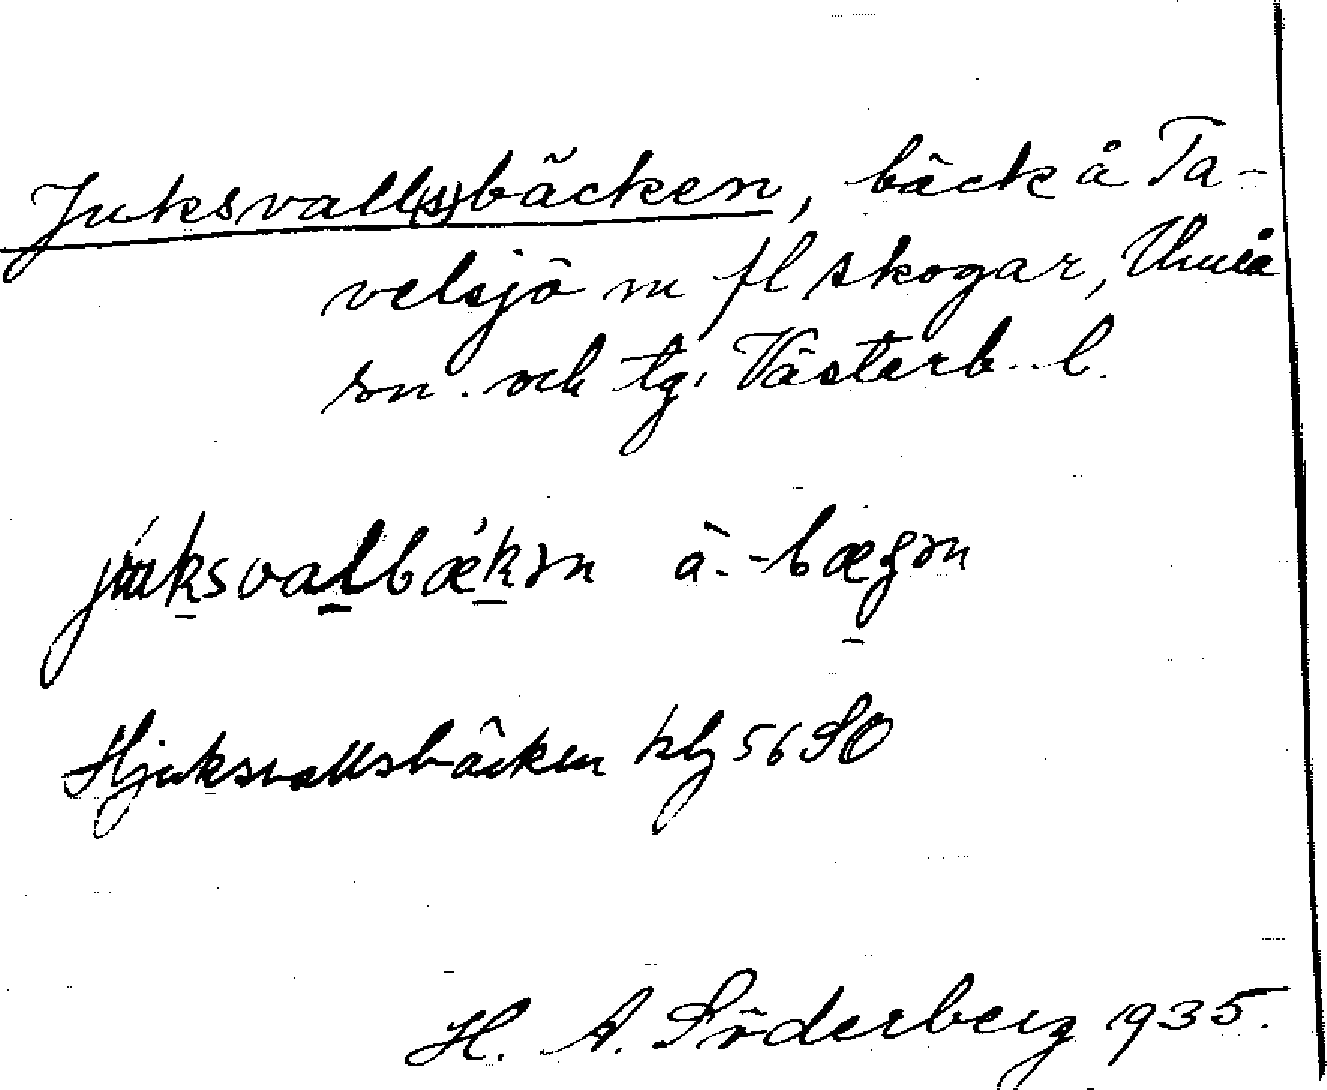 Juksvall(s)bäcken, bäck å Ta-
velsjö m fl skogar, Umeå
sn. och tg. Västerb. l.
juksvalbækən å. -bægən
Hjuksvallsbäcken kbl 56 SO
H. A. Söderberg 1935.